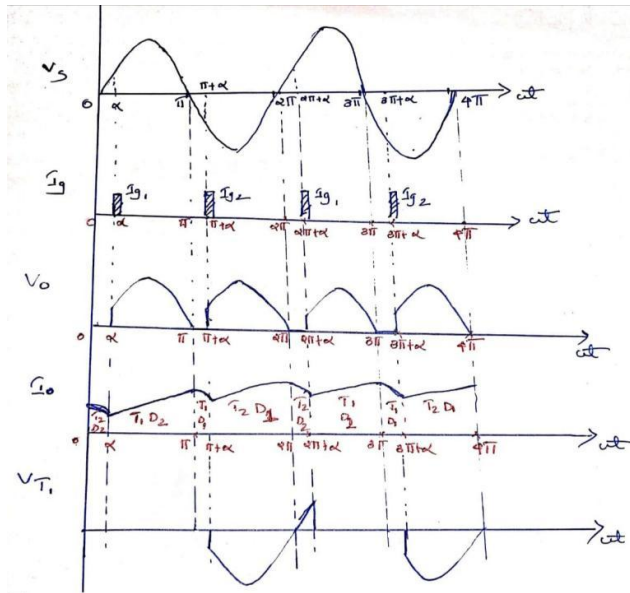 Vs
0 α π π+α 2π 2π+α 3π 3π+α 4π ωt
Ig
Ig1 Ig2 Ig1 Ig2
0 α π π+α 2π 2π+α 3π 3π+α 4π ωt
Vo
0 α π π+α 2π 2π+α 3π 3π+α 4π ωt
Io
T2 D2 T1 D2 T1 D1 T2 D1 T2 D2 T1 D2 T1 D1 T2 D1
0 α π π+α 2π 2π+α 3π 3π+α 4π ωt
VT1
ωt